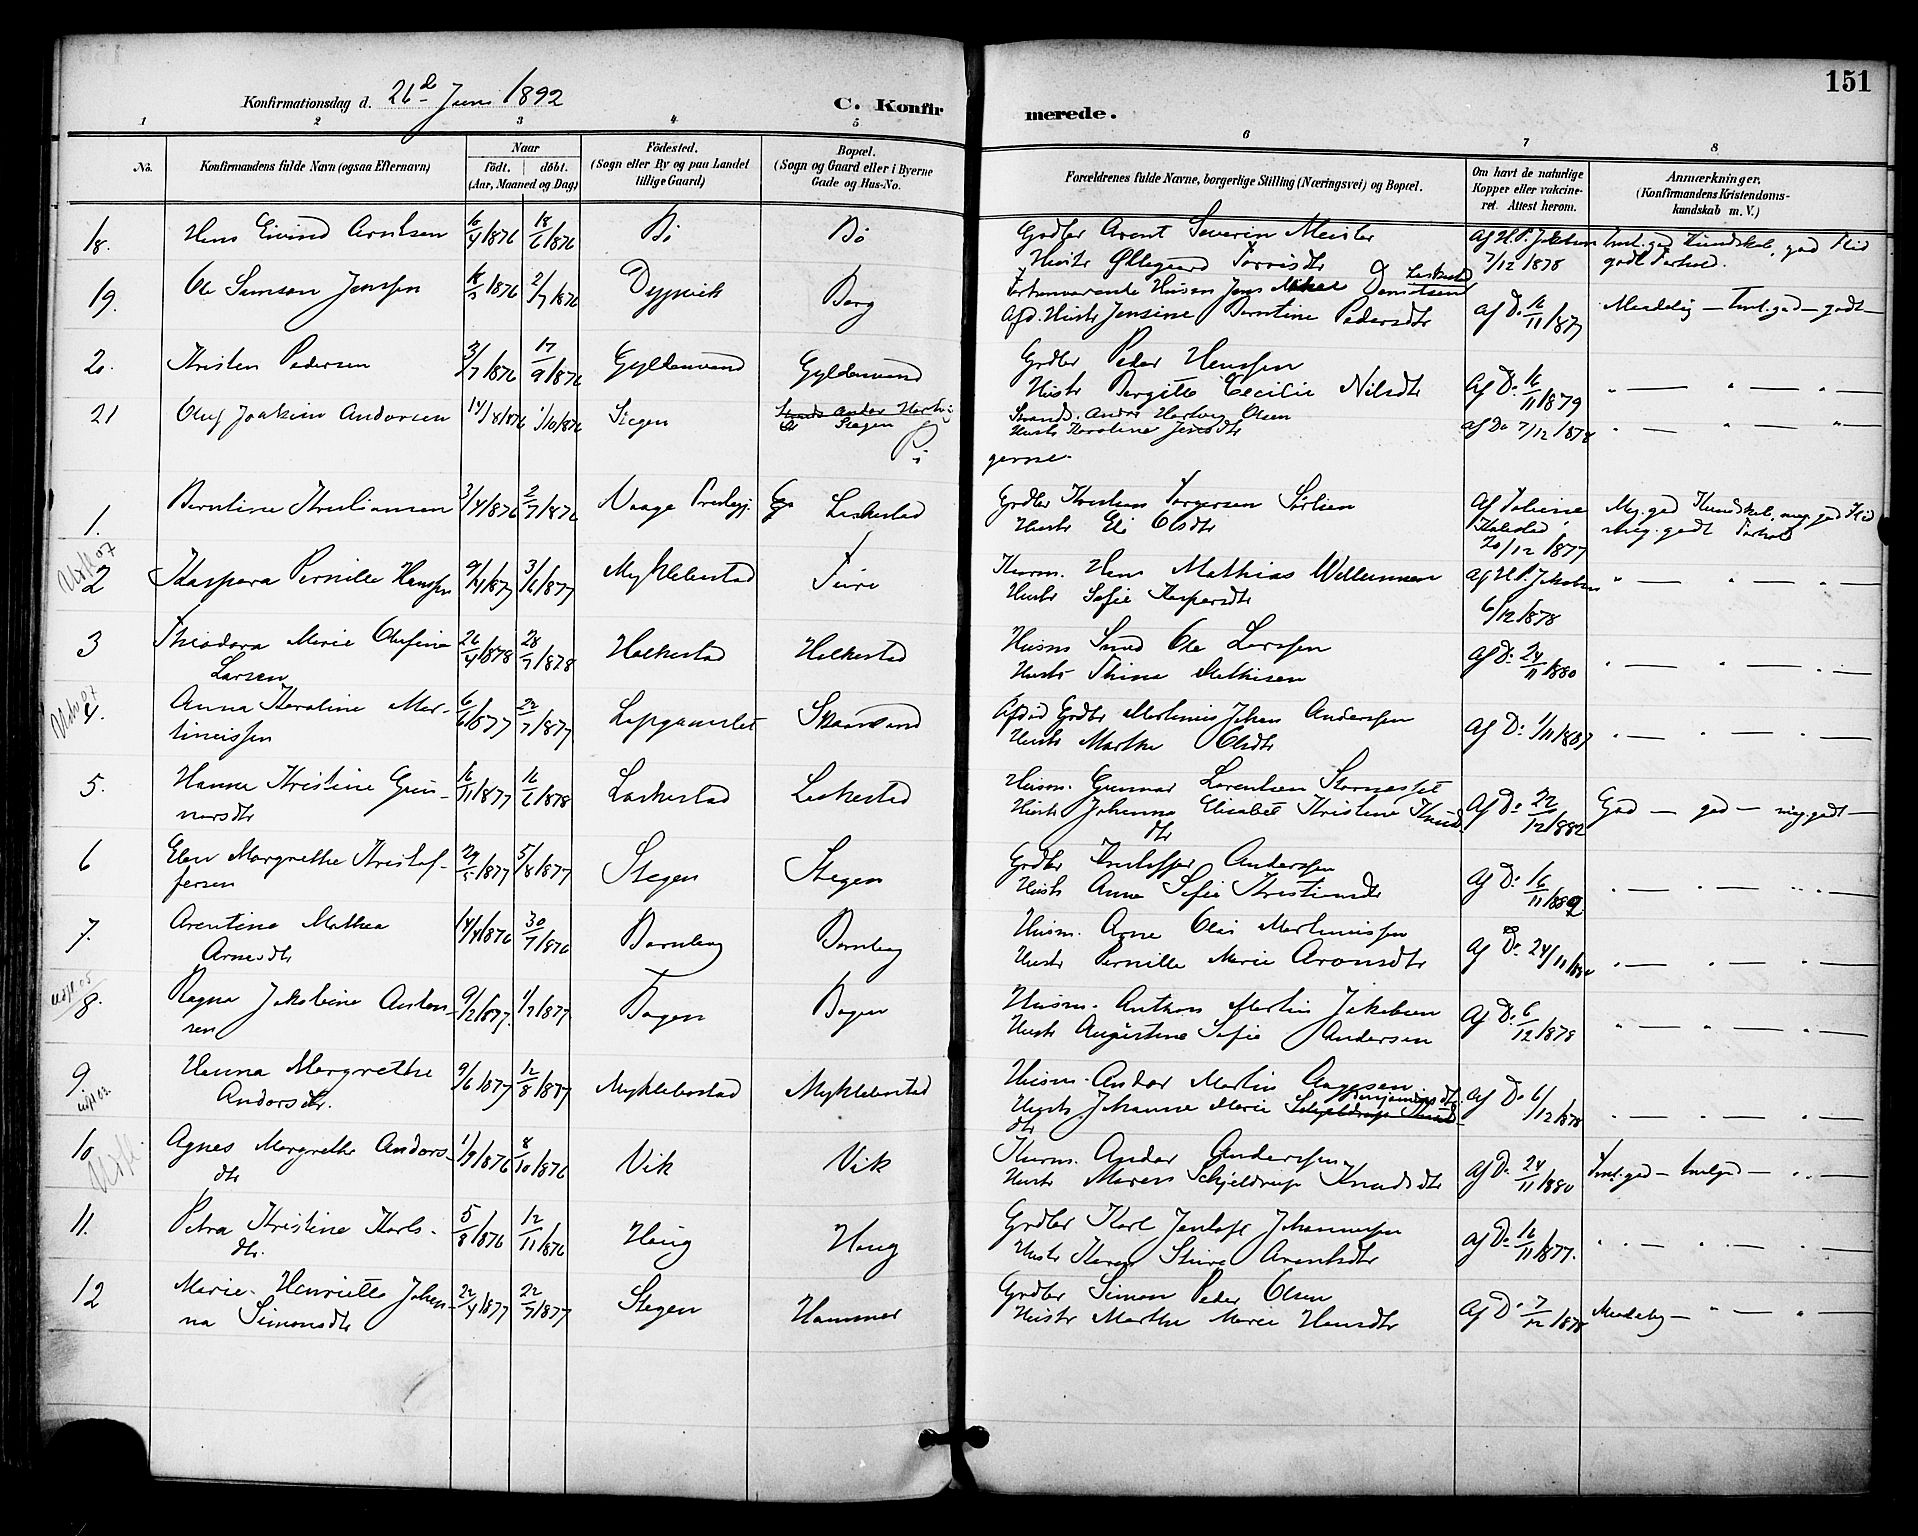 151
Konfirmationsdag d. 26d Juni 1892
C. Konfirmerede.
1 2 3 4 5 6 7 8
No.
Konfirmandens fulde Navn (ogsaa Efternavn)
Naar
födt. döbt.
(Aar, Maaned og Dag)
Födested.
(Sogn eller By og paa Landet
tillige Gaard)
Bopæl.
(Sogn og Gaard eller i Byerne
Gade og Hus-No.
Forældrenes fulde Navne, borgerlige Stilling (Næringsvei) og Bopæl.
Om havt de naturlige
Kopper eller vakcine-
ret. Attest herom.
Anmærkninger,
(Konfirmandens Kristendoms-
kundskab m. V.)
18. Hans Eivind Arntsen 16/4 1876 18/6 1876 Bö Bö
Grdbr Arent Severin Meisler
Hustr Ellegaard
Af H. P. Jakobsen
7/12 1878
Tml. god Kundskab, god Flid
godt Forhold.
19. Ole Samson Jenssen 1876 2/7 1876 Dypvik Borg
Forhenværende Husm Jens Mikal Danielsen Leskestad
Afd. Hustr Jensine Berntine Pedersdtr
Af Do 16/11 1877
Maadelig — Tml. god — godt —
20. Kristen Pedersen 3/7 1876 17/9 1876 Gyldensand Gyldensand
Grdbr Peder Hanssen
Hustr Birgitte Cecilie Nilsdtr
Af Do 16/11 1879
" — " — " —
21 Oluf Joakim Andorsen 14/8 1876 1/10 1876 Stegen Stegen
Strands. Andor Hartvig Olsen
Hustr Karoline Jensdtr
af Do 7/12 1878
" — " — " —
Pi
gerne.
1. Berntine Kristiansen 3/4 1876 2/7 1876 Vaage Prestegj. Leskestad
Grdbr Kristian Torgersen Sörlien
Hustr Eli Olsdtr
20/12 1877
Meg. god Kundskab, meg. god Flid
meg. godt Forhold
Utfl. 07
2 Kaspara Pernille Hanssen 1877 1877 Myklebostad
Husm. Hans Mathias Willumsen
Hustr Sofie Kaspersdtr
af H. P. Jakobsen
6/12 1878
" — " — " —
3 Theodora Marie Olufine
Larsen
26/4 1878 28/7 1878 Helkestad Helkestad
Husm Smed Ole Larssen
Hustr Thina Mathisen
Af Do 24/11 1880
" — " — " —
4. Anna Karoline Mar-
tinussen
6/6 1877 22/7 1877 Skaansund
Afdød Grdbr Martinus Johan Anderssen
Hustr Marthe Olsdtr
" — " — " —
5. Hanna Kristine Gun-
narsdtr
16/11 1877 16/6 1878 Leskestad Leskestad
Husm. Gunnar Lorentsen Stornesset
Hustr Johanna Elisabet Kristine Knud-
dtr
Af Do 22/12 1882
God — god — meg. godt —
6 Elen Margrethe Kristof-
fersen
1877 5/8 1877 Stegen Stegen
Grdbr Kristoffer Anderssen
Hustr Anne Sofie Kristiansdtr
Af Do
" — " — " —
7. Arentine Mathea
Arnesdtr
14/4 1876 30/7 1876 Bornberg Bornberg
Husm. Arne Olai Martinussen
Hustr Pernille Marie Aronsdtr
Af Do 24/11 1880
" — " — " —
Utfl. 05
8. Ragna Jakobine Anton-
sen
9/2 1877. 1/7 1877 Bogen Bogen
Husm. Anthon Martin Jakobsen
Hustr Augustine Sofie Andersen
Af Do 6/12 1878
" — " — " —
9. Hanna Margrethe
Andorsdtr.
9/6 1877 12/8 1877 Myklebostad Myklebostad
Husm. Andor Martin Aagesen
Hustr Johanne Marie Benjaminsdtr
Af Do 6/12 1878
" — " — " —
10 Agnes Margrethe Andors-
dtr
1/9 1876 8/10 1876 Vik Vik
Husm. Andor Anderssen
Hustr Maren Schjeldrup Knudsdtr
Af Do 24/11 1880
Tml. god — tmlgod — " —
11. Petra Kristine Karls-
dtr.
5/8 1876 12/11 1876 Haug Haug
Grdbr Karl Jentoft Johannessen
Hustr Karen Arentsdtr
af Do 16/11 1877.
" — " — " —
12 Marie Henriette Johan-
na Simonsdtr
22/4 1877 22/7 1877 Stegen Hammer
Grdbr Simon Peder Olsen
Hustr Marthe Marie Hansdtr
Af Do 7/12 1878
Maadelig — " — " —